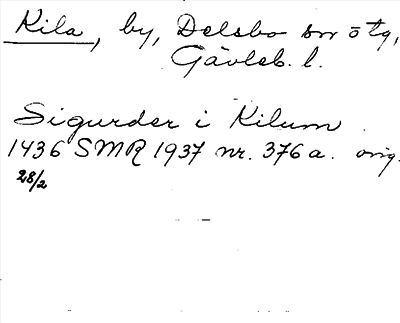 Kila, by, Delsbo sn ōtg,
Gävleb. l.
Sigurder i Kilum
1436 SMR 1937 nr. 376a. orig.
28/2